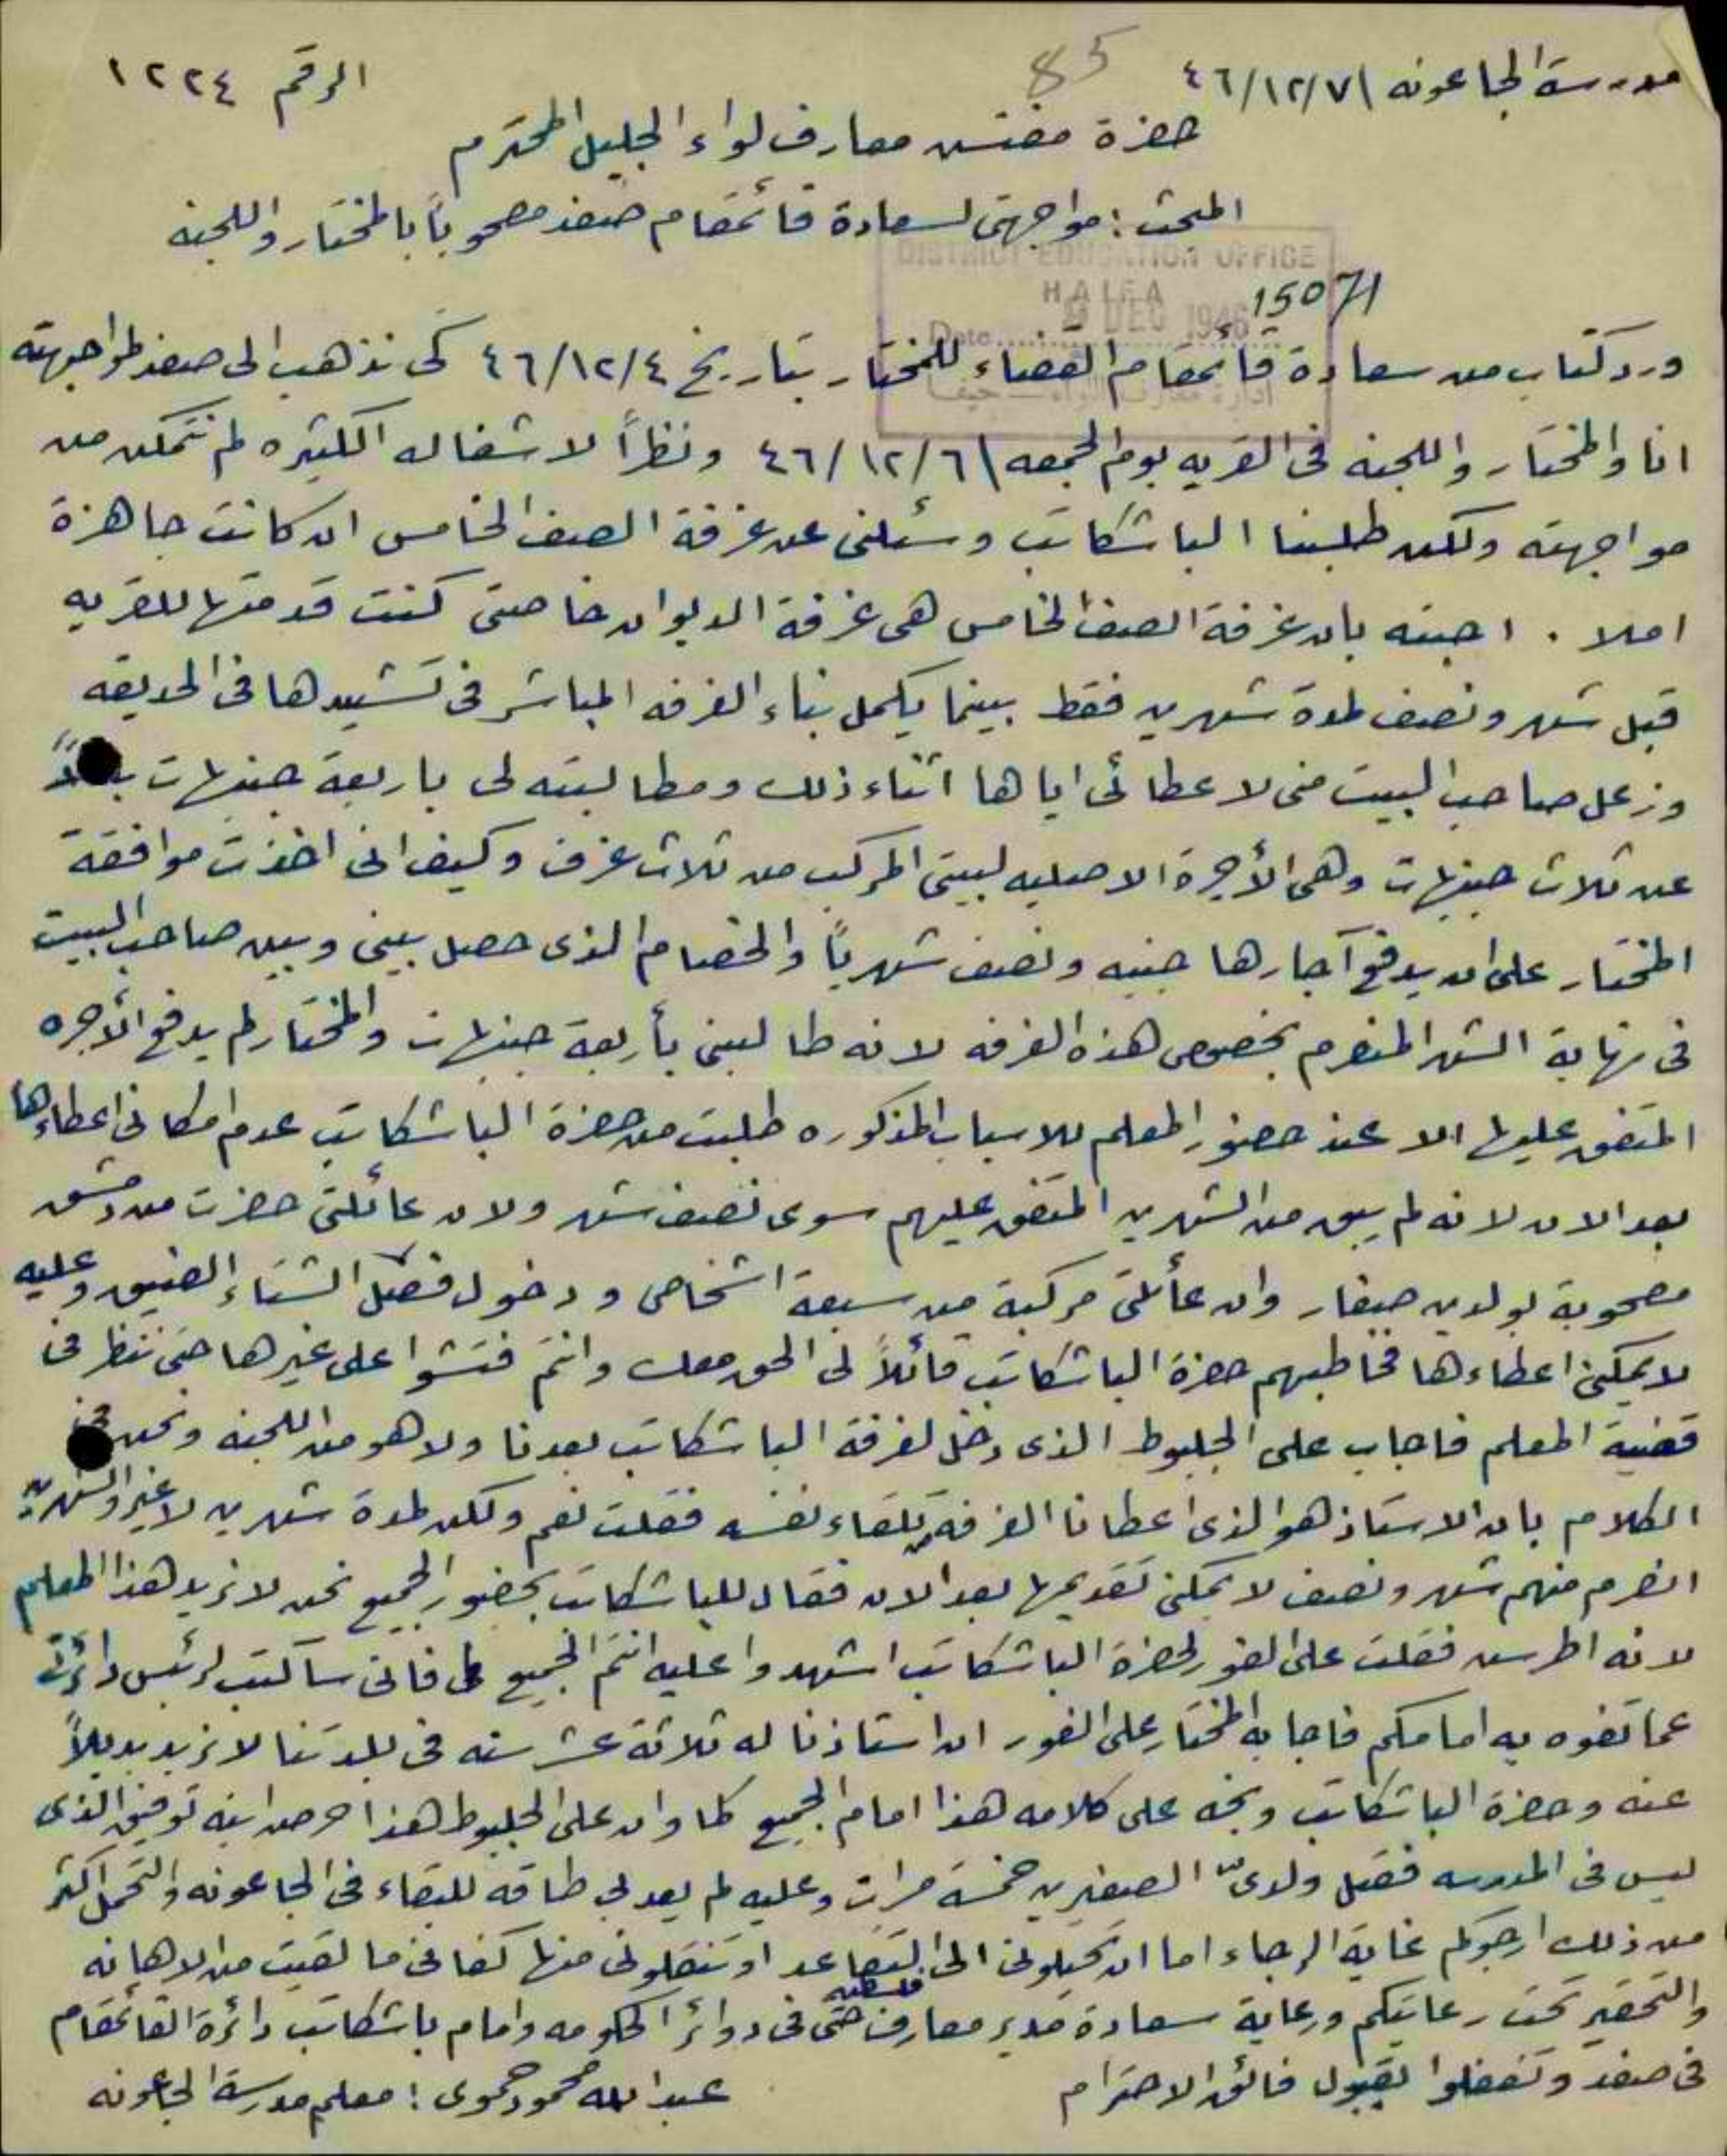 مدرسة الجاعونه ٤٦/١٢/٧
85
الرقم ١٢٢٤
حضرة مفتش معارف لواء الجليل المحترم
المبحث : مواجهتى لسعادة قائمقام صفد مصحوباً بالمختار واللجنه
DISTRICT EDUCATION OFFICE
HAIFA
DEC 1946
Date
15071
ورد كتاب من سعادة قائمقام القضاء للمختار بتاريخ ٤٦/١٢/٤ كى نذهب الى صفد لمواجهته
انا والمختار واللجنه فى القريه يوم الجمعه ٤٦/١٢/٦ ونظراً لاشغاله الكثيره لم نتمكن من
مواجهته ولكن طلبنا الباشكاتب وسئلنى عن غرفة الصف الخامس ان كانت جاهزة
املا . اجبته بان غرفة الصف الخامس هى غرفة الديوان خاصتى كنت قدمتها للقريه
قبل شهر ونصف لمدة شهرين فقط بينما يكمل بناء الغرفه المباشر فى تشييدها فى الحديقه
وزعل صاحب البيت منى لاعطائى اياها اثناء ذلك ومطالبته لى باربعة جنيهات
عن ثلاث جنيهات وهى الأجرة الاصليه لبيتى المركب من ثلاث غرف وكيف انى اخذت موافقة
المختار على ان يدفع آجارها جنيه ونصف شهرياً والخصام الذى حصل بينى وبين صاحب البيت
فى نهاية الشهر المنصرم بخصوص هذه الغرفه لانه طالبنى بأربعة جنيهات والمختار لم يدفع الأجره
المتفق عليها الا عند حضور المعلم للاسباب المذكوره طلبت من حضرة الباشكاتب عدم امكانى اعطاءها
بعد الان لانه لم يبق من الشهرين المتفق عليهم سوى نصف شهر ولان عائلتى حضرت من دمشق
مصحوبة بولدين صغار وان عائلتى مركبة من سبعة اشخاص ودخول فصل الشتاء الضيق وعليه
لا يمكنى اعطاءها فخاطبهم حضرة الباشكاتب قائلاً لى الحق معك وانتم فتشوا على غيرها حتى ننظر فى
قضية المعلم فاجاب على الجلبوط الذى دخل لغرفة الباشكاتب بعدنا ولا هو من اللجنه ونحن
الكلام بان الاستاذ هو الذى اعطانا الغرفة من تلقاء نفسه فقلت نعم ولكن لمدة شهرين لا غير والشهرين
انصرم منهم شهر ونصف لا يمكنى تقديمها بعد الان فقال للباشكاتب بحضور الجميع نحن لا نريد هذا المعلم
لانه اطرش فقلت على الفور لحضرة الباشكاتب اشهدوا عليه انتم الجميع فانى ساكتب لرئيس دائرتى
عما تفوه به امامكم فاجابه المختار على الفور ان استاذنا له ثلاثة عشر سنه فى بلدتنا لا نريد بديلاً
عنه وحضرة الباشكاتب وبخه على كلامه هذا امام الجميع كما وان على الجلبوط هذا حرض ابنه توفيق الذى
ليس فى المدرسه فقتل ولدىّ الصغيرين خمسة مرات وعليه لم يعد لى طاقه للبقاء فى الجاعونه والتحمل اكثر
من ذلك ارجوكم غاية الرجاء اما ان تحيلونى الى التقاعد او تنقلونى منها كفانى ما لقيت من الاهانه
والتحقير تحت رعايتكم ورعاية سعادة مدير معارف فلسطين حتى فى دوائر الحكومه وامام باشكاتب دائرة القائمقام
فى صفد وتفضلوا بقبول فائق الاحترام
عبدالله محمود حموى : معلم مدرسة الجاعونه